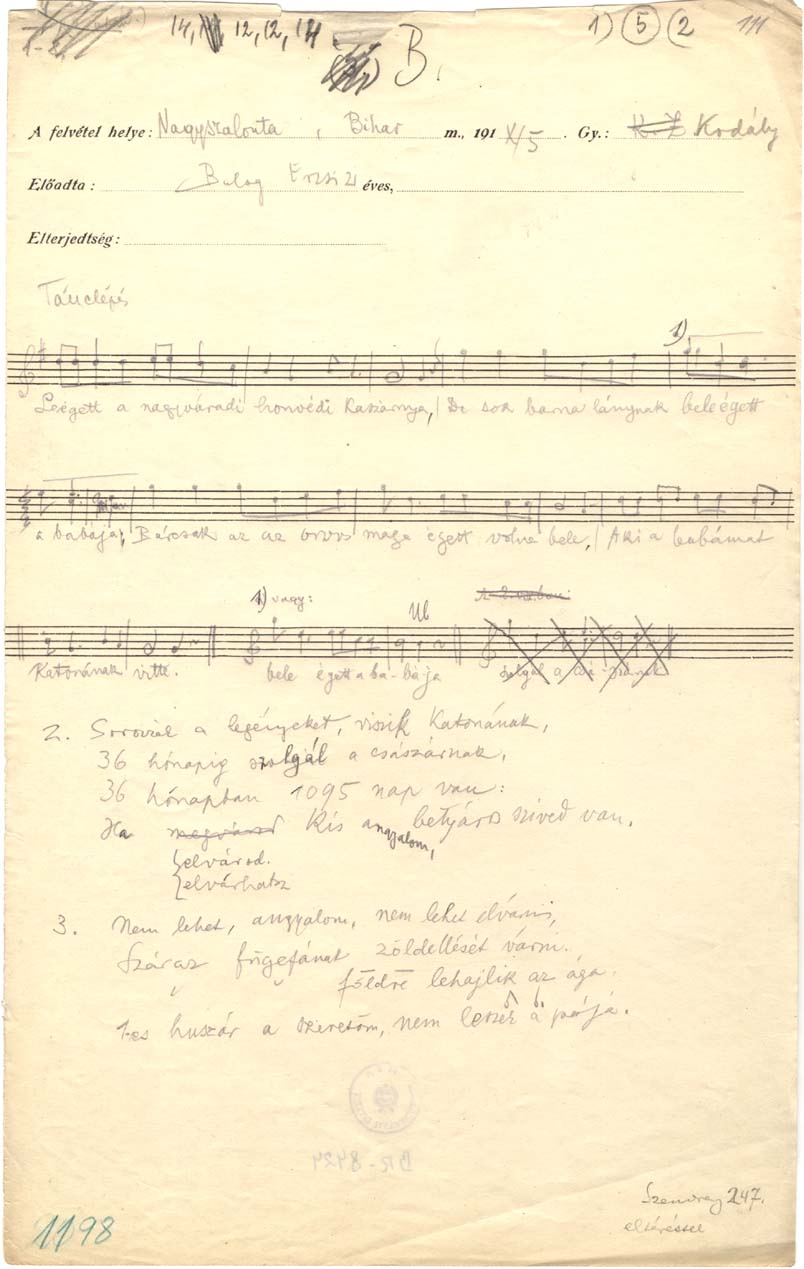 14, 12, 12, 14
1) 5 (2
B.
A felvétel helye: Nagyszalonta, Bihar m., 191 X/5. Gy.: K. Z Kodály
Előadta: Balog Erzsi 21 éves,
Elterjedtség:
Tánclépés
1)
Leégett a nagyváradi honvédi kaszárnya, De sok barna lánynak beleégett
a babája, Bárcsak az az orvos maga égett volna bele, Aki a babámat
1) vagy:
Katonának vitte. bele égett a ba-bája szolgál a csá-szárnak
2. Sorozzák a legényeket, viszik katonának,
36 hónapig szolgál a császárnak,
36 hónapban 1095 nap van:
Ha kis angyalom, betyáros szived van,
elvárod.
elvárhatsz
3. Nem lehet, angyalom, nem lehet elvárni,
Száraz fügefának zöldellését várni.
" " földre lehajlik az ága.
1-es huszár a szeretőm, nem leszek a párja.
BR-8424
1198
Szendrey 247.
eltéréssel